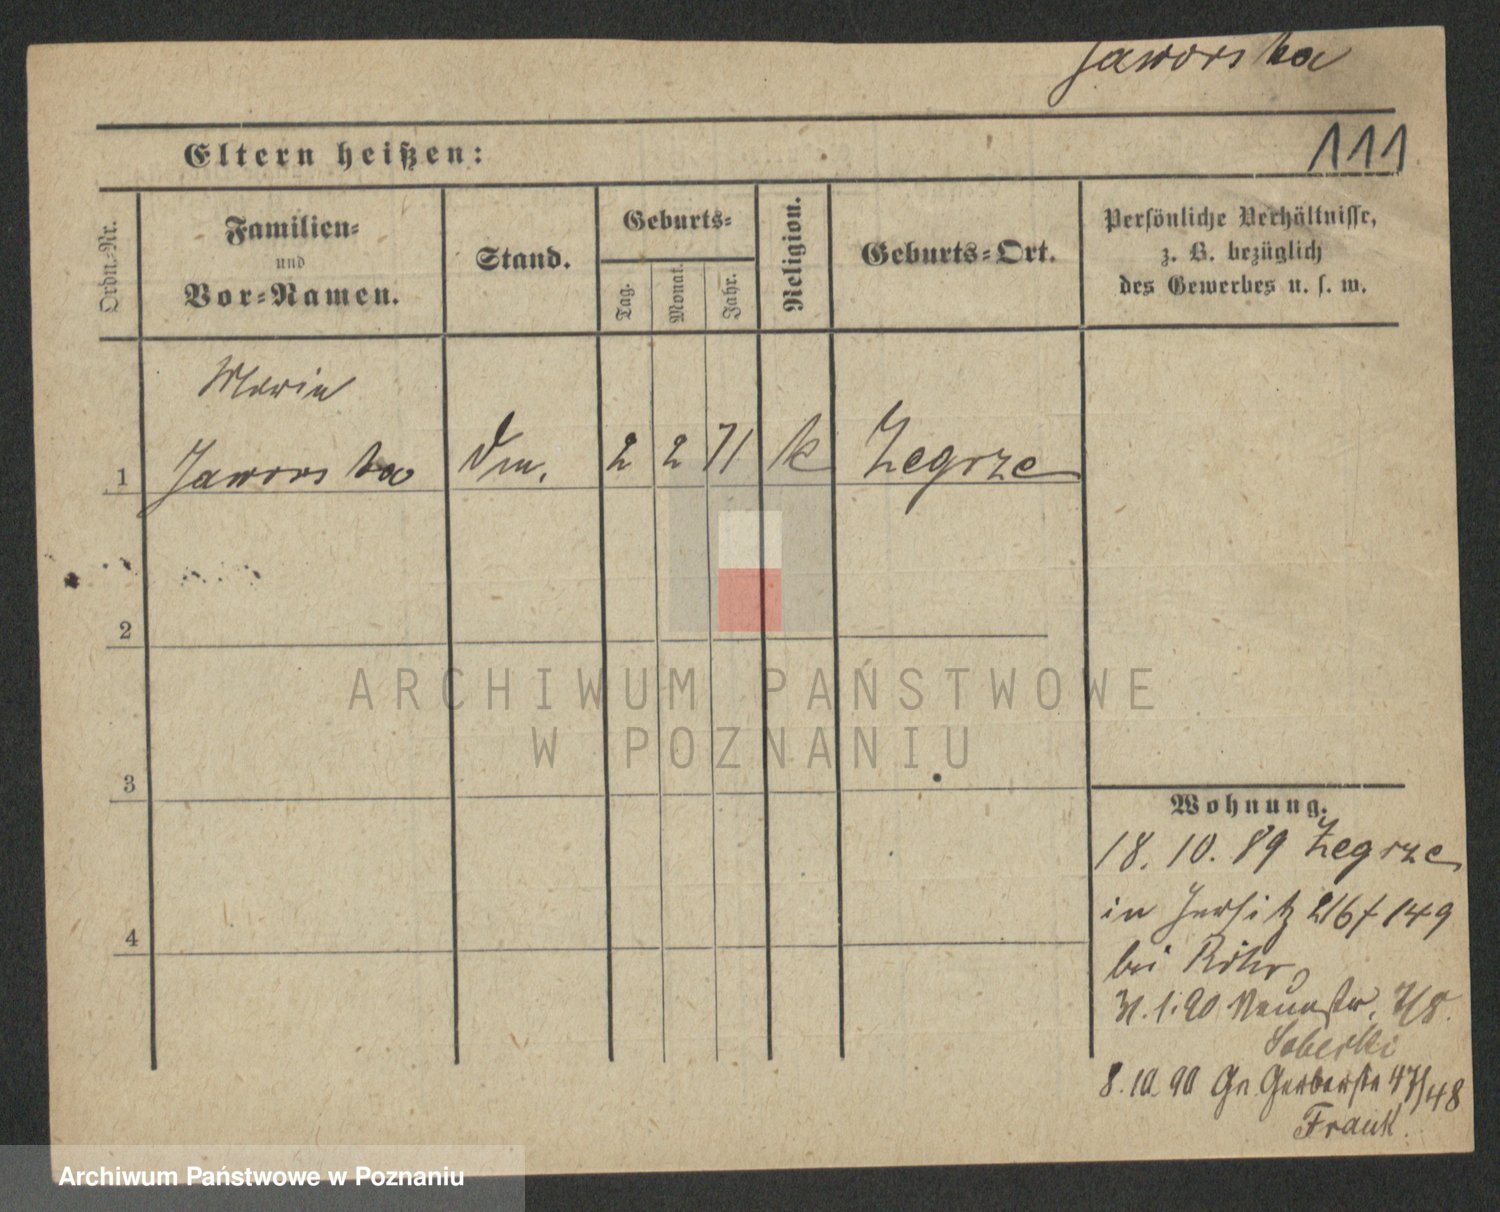 Jaworska
111
Eltern heißen:
Ordn.-Nr.
Familien-
und
Vor-Namen.
Stand.
Geburts-
Tag.
Monat.
Jahr.
Religion.
Geburts-Ort.
Persönliche Verhältnisse,
z. B. bezüglich
des Gewerbes u. s. w.
Marie
1 Jaworska 2 2 71 k Zegrze
2
3
4
Wohnung.
18. 10. 89 Zegrze
in Jersitz 149
bei
31. 1. 90 7/8.
8. 10. 90 Gr. Gerberstr 47/48
Frank.
ARCHIWUM PAŃSTWOWE
W POZNANIU
Archiwum Państwowe w Poznaniu